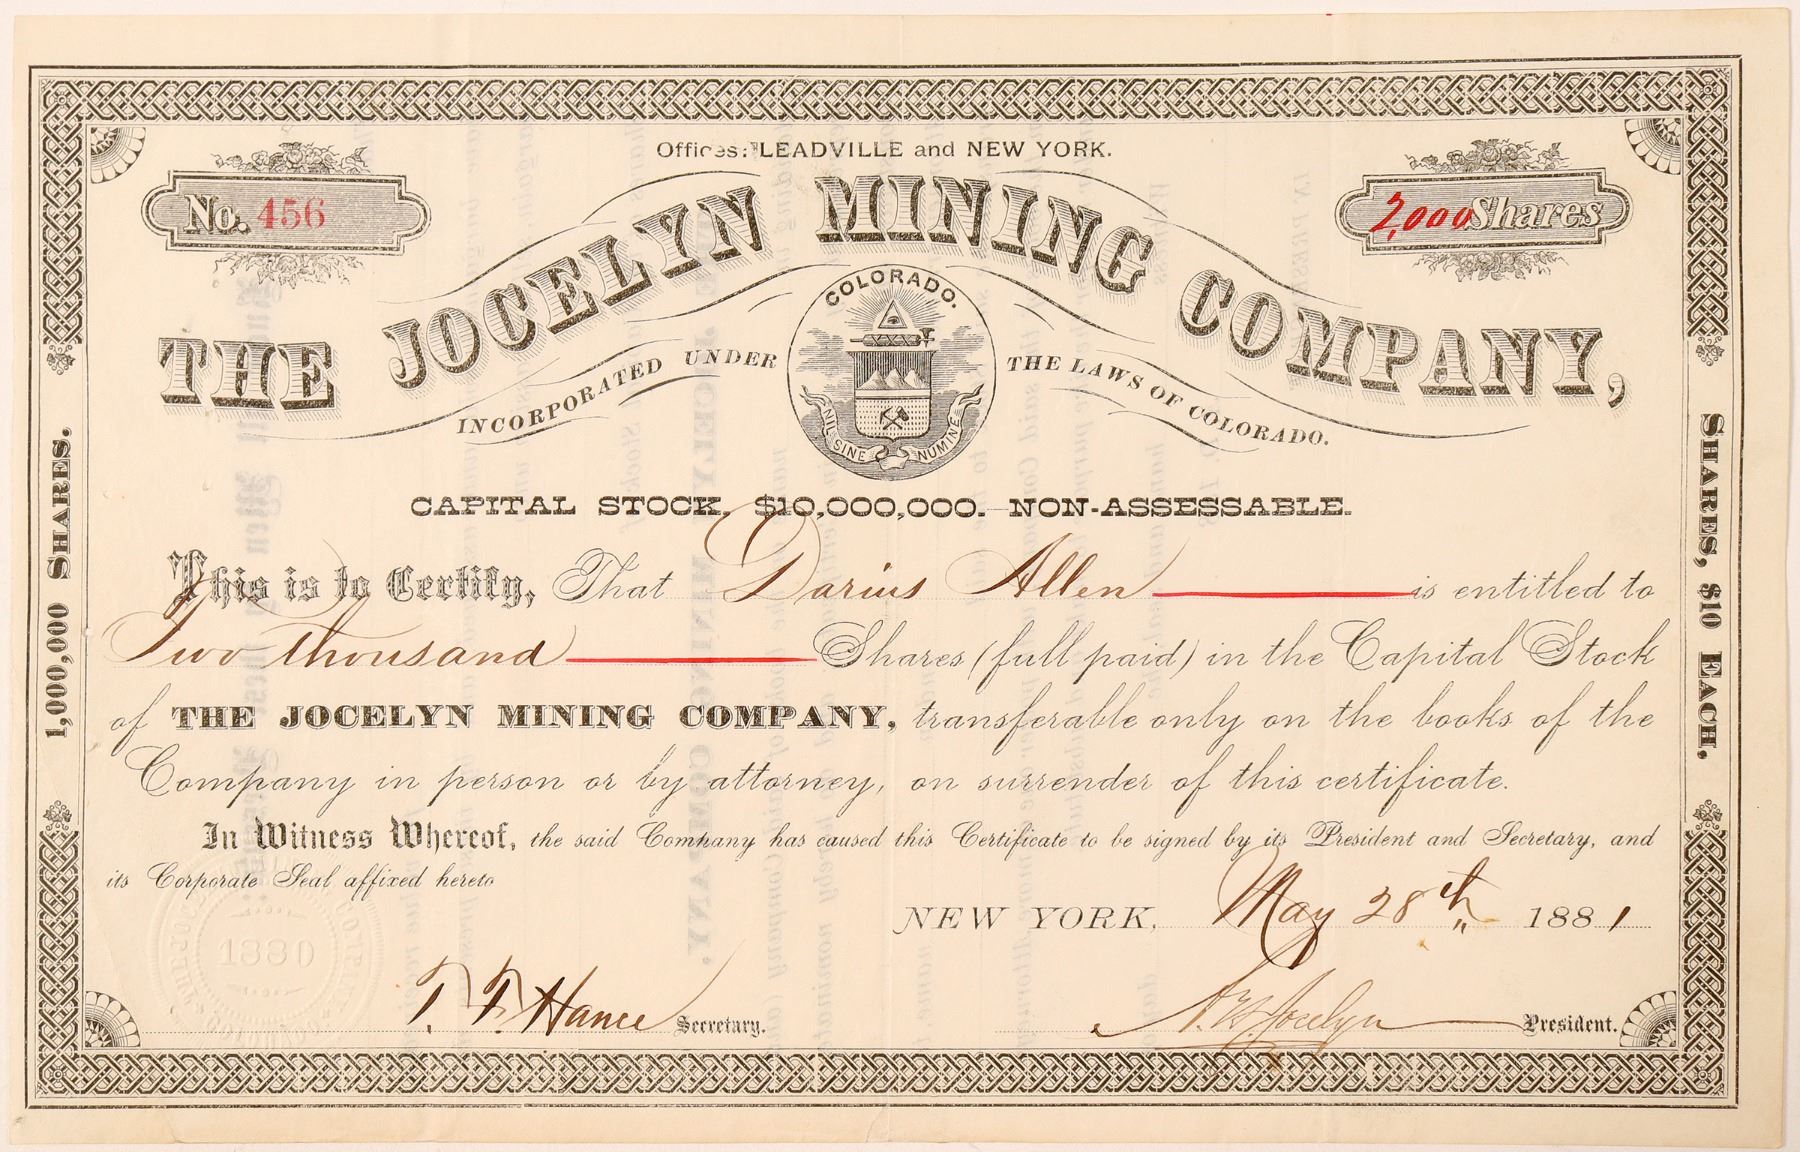 Offices: LEADVILLE and NEW YORK.
No. 456
2,000 Shares
THE JOCELYN MINING COMPANY,
COLORADO.
INCORPORATED UNDER THE LAWS OF COLORADO.
NIL SINE NUMINE
CAPITAL STOCK, $10,000,000. NON-ASSESSABLE.
1,000,000 SHARES.
SHARES, $10 EACH.
This is to Certify, That Darius Allen is entitled to
Two thousand Shares (full paid) in the Capital Stock
of THE JOCELYN MINING COMPANY, transferable only on the books of the
Company in person or by attorney, on surrender of this certificate.
In Witness Whereof, the said Company has caused this Certificate to be signed by its President and Secretary, and
its Corporate Seal affixed hereto
NEW YORK, May 28th 1881
1880
COLORADO
Hance Secretary.
Jocelyn President.